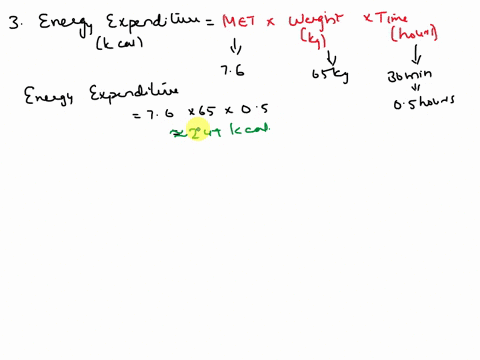 3. Energy Expenditure = MET × Weight × Time
(kcal) (kg) (hours)
7.6 65kg 30min
0.5hours
Energy Expenditure
= 7.6 × 65 × 0.5
≈ 247 kcal.